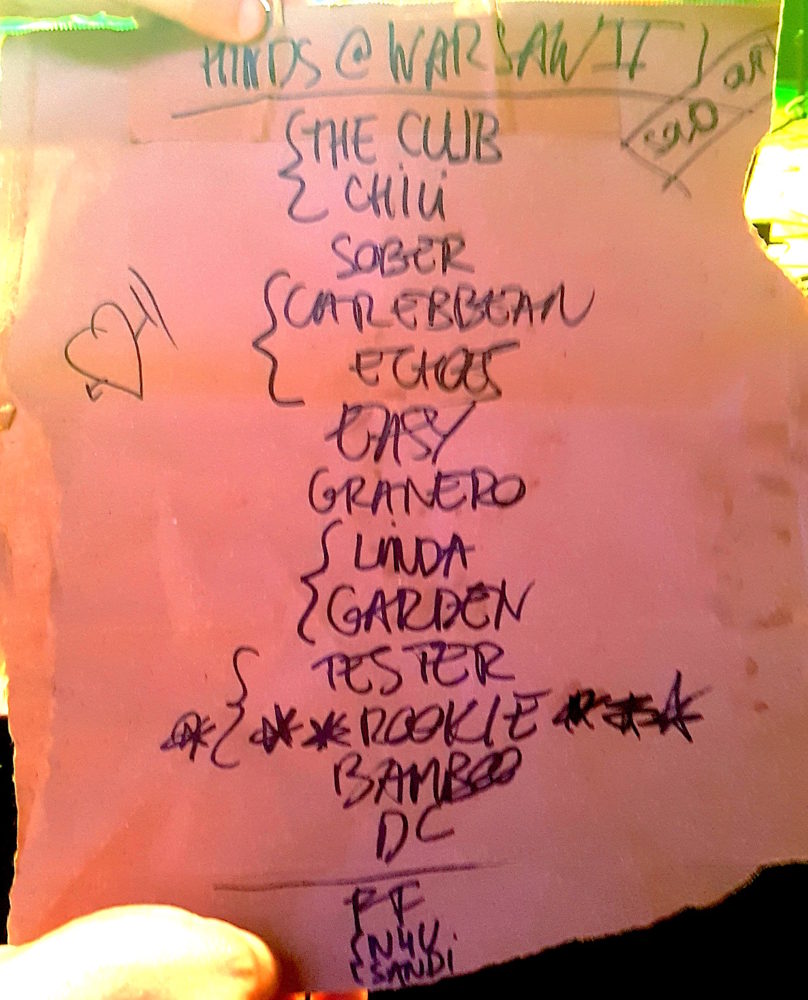 HINDS @ WARSAW II
THE CLUB
CHILI
SOBER
CAREBBEAN
ECHOES
EASY
GRANERO
LINDA
GARDEN
TESTER
ROOKIE
BAMBOO
DC
FF
N4U
SANDI